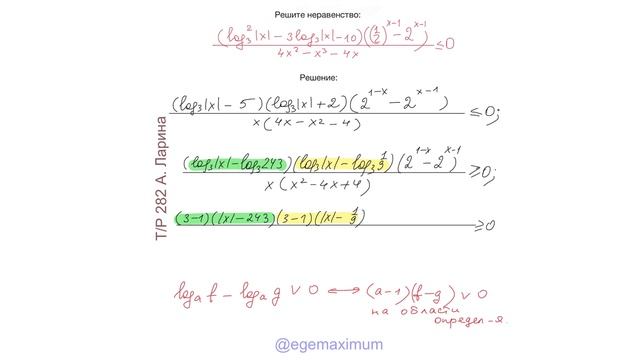 Решите неравенство:
(log₃²|x| − 3log₃|x| − 10)((1/2)^(x−1) − 2^(x−1)) / (4x² − x³ − 4x) ≤ 0
Решение:
(log₃|x| − 5)(log₃|x| + 2)(2^(1−x) − 2^(x−1)) / (x(4x − x² − 4)) ≤ 0;
(log₃|x| − log₃243)(log₃|x| − log₃ 1/9)(2^(1−x) − 2^(x−1)) / (x(x² − 4x + 4)) ≥ 0;
(3−1)(|x| − 243)(3−1)(|x| − 1/9) ≥ 0
logₐ f − logₐ g ∨ 0 ⟷ (a−1)(f−g) ∨ 0
на области
определ-я.
Т/Р 282 А. Ларина
@egemaximum